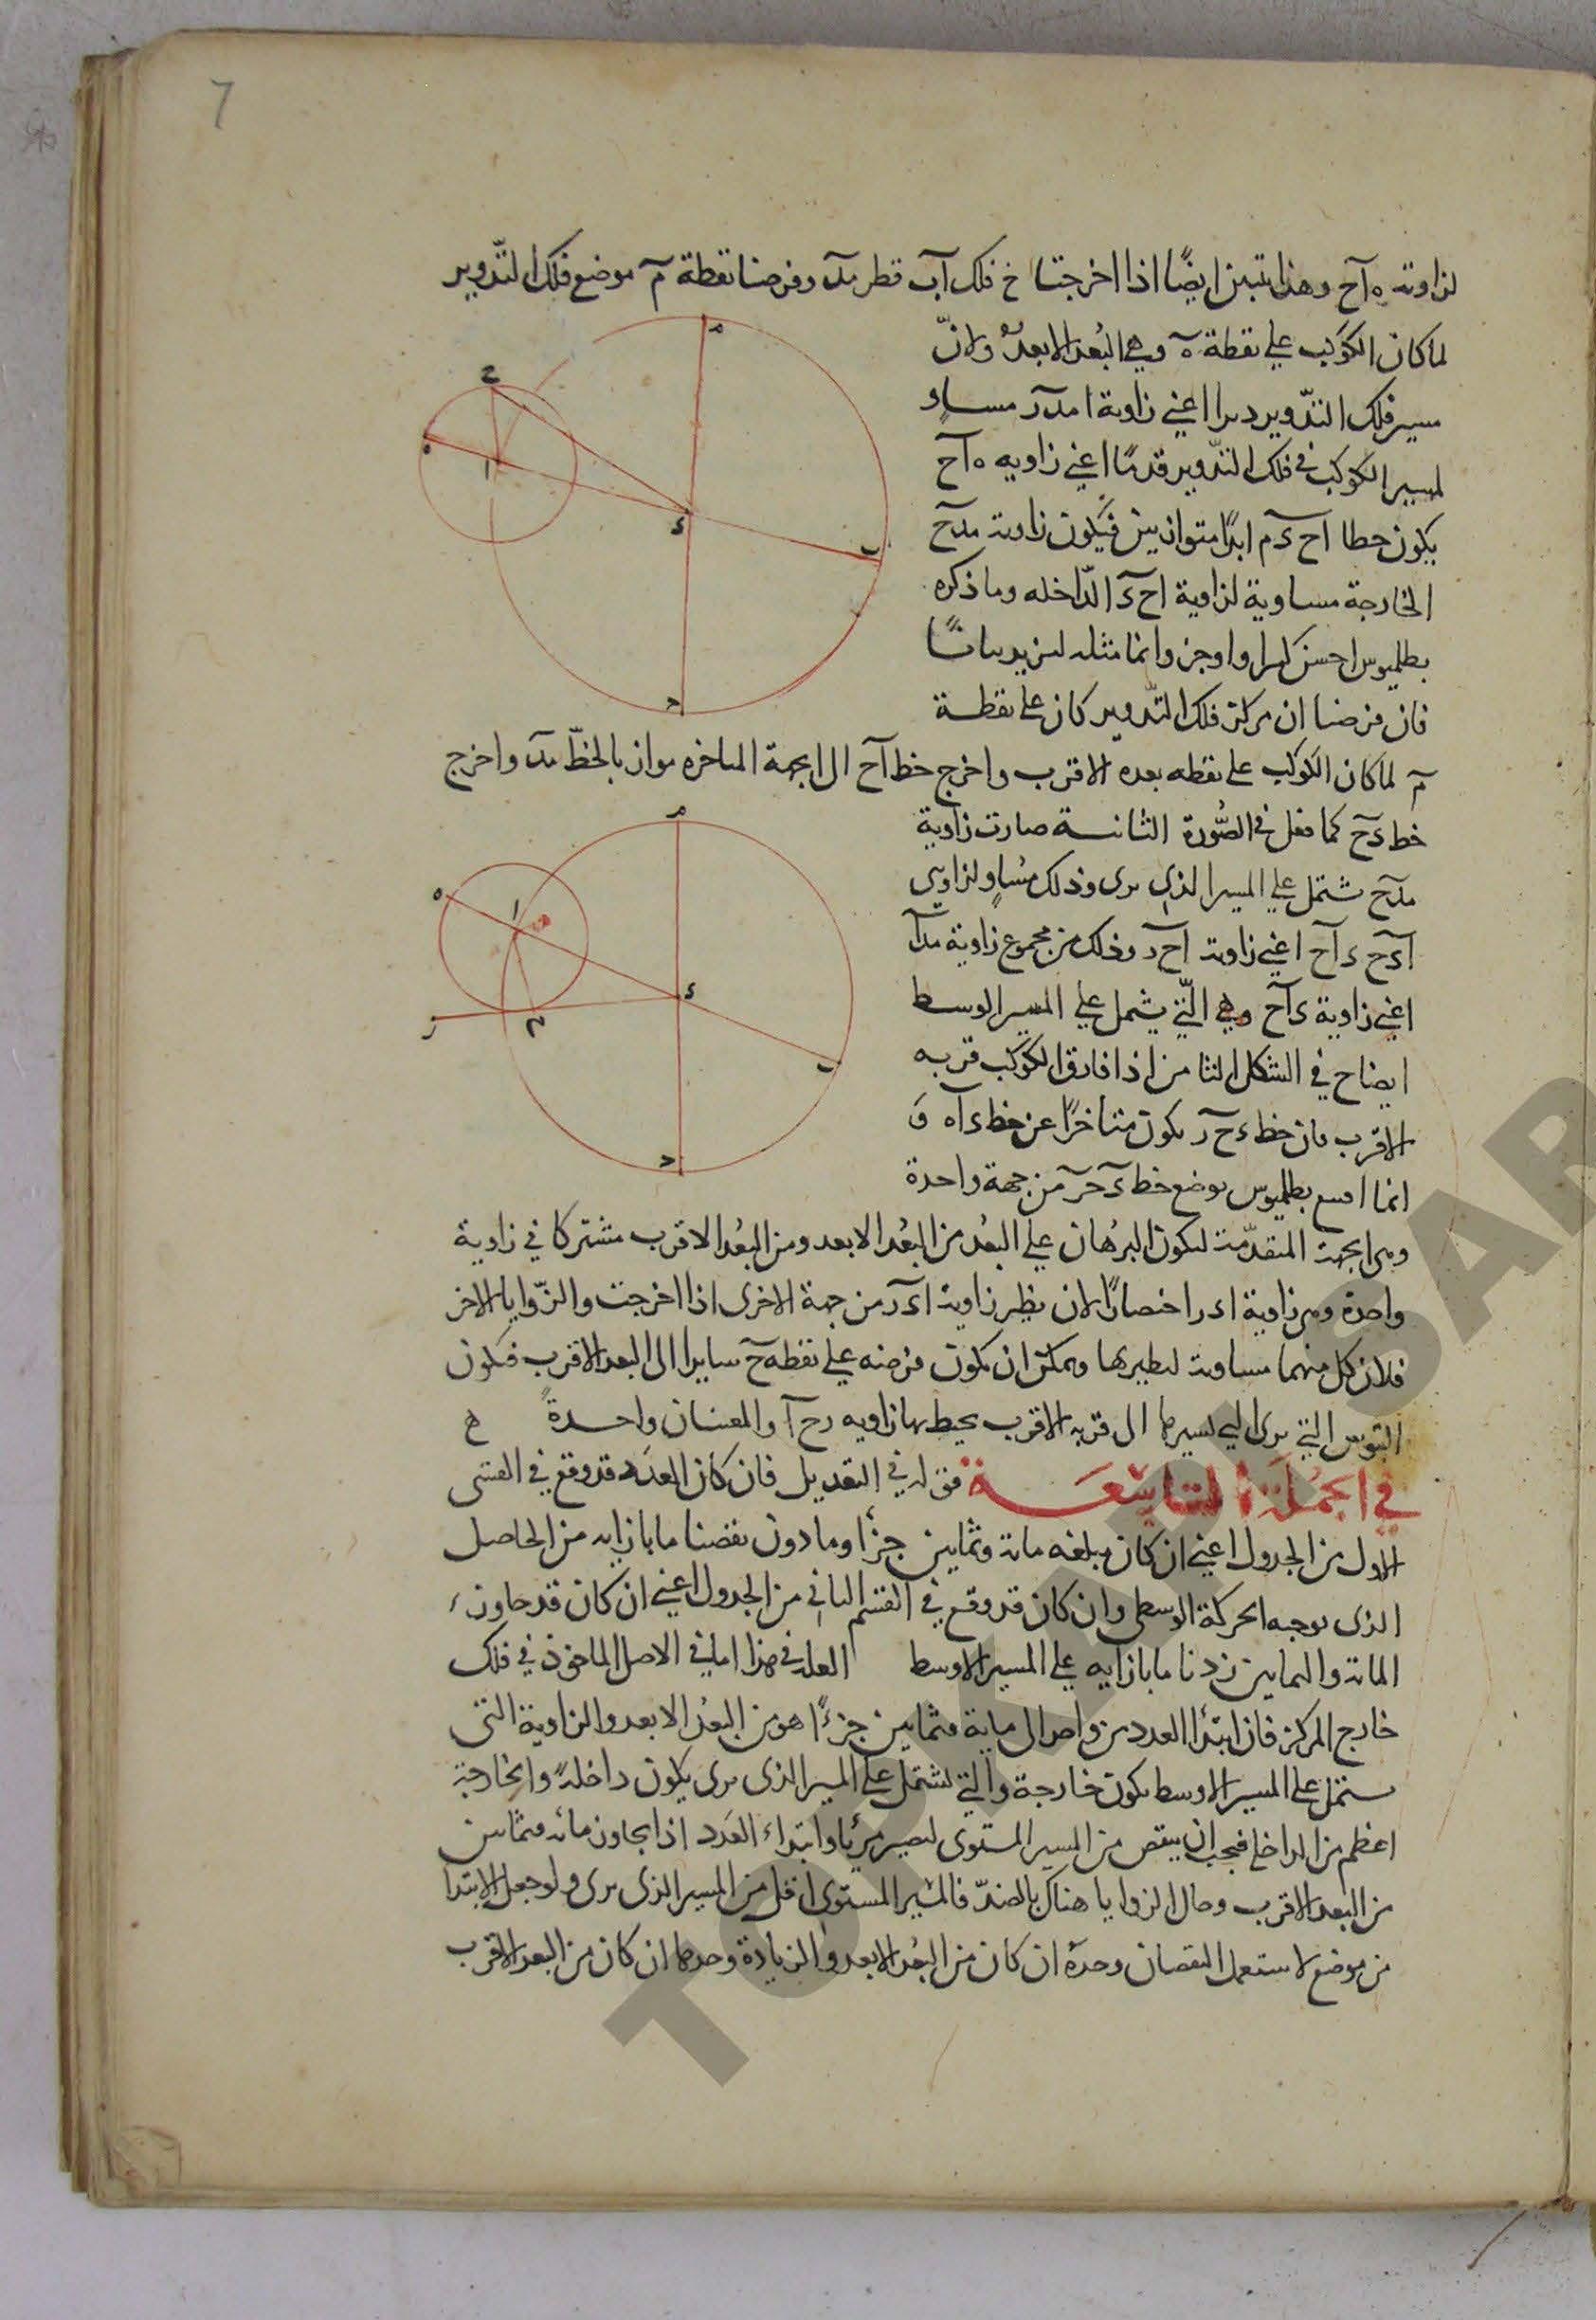 7
لزاوية ه آح وهذا يتبين ايضًا اذا اخرجنا في فلك آب قطر مد وفرضنا نقطة م موضع فلك التّدوير
لما كان الكوكب على نقطة ه وهي البُعد الابعد ولانّ
مسير فلك التّدوير اعني زاوية ا مساو
لمسير الكوكب في فلك التّدوير قدمًا اعني زاويه ه آح
يكون خطا اح د م ابدًا متوازيين فيكون زاوية مدح
الخارجة مساوية لزاوية اح د الداخله وما ذكره
بطلميوس احسن واوجز وانما مثله ليزيد بيانًا
فان فرضنا ان مركز فلك التّدوير كان على نقطة
م لما كان الكوكب على نقطه بعده الاقرب واخرج خط آح الى الجهة المتاخره مواز بالخطّ مد واخرج
خط دح كما فعل في الصُّورة الثانية صارت زاوية
مدح تشتمل على المسير الذي يرى وذلك مُساوٍ لزاويتي
ادح د آح اعني زاوية اح ر وذلك من مجموع زاوية مدا
اعني زاوية د آح وهي الّتي يشتمل على المسير الوسط
ايضاح في الشكل الثامن اذا فارق الكوكب قربه
الاقرب فان خط د ح ر يكون متاخرًا عن خط د آه و
انما بطلميوس بوضع خط د ح ر من جهة واحدة
وهي الجهة المتقدّمة ليكون البرهان على البعُد من البُعد الابعد ومن البُعد الاقرب مشتركا في زاوية
واحدة وهي زاوية ا د ر اختصارًا لان نظير زاوية ا د ر من جهة الاخرى اذا اخرجت والزّوايا الاخر
فلان كل منهما مساوية لنظيرها ويمكن ان يكون فرضه على نقطه ح سايرا الى البعد الاقرب فيكون
القوس التي يرى الى قربه الاقرب يحيط بها زاويه د ح آ والمعنيان واحدة
في الجُملَة التاسعَة قوله في التعديل فان كان العدد قد وقع في القسم
الاول من الجدول اعني ان كان مبلغه ماية وثمانين جزءًا وما دون نقصنا ما بازايه من الحاصل
الذي يوجبه الحركة الوسطى وان كان قد وقع في القسم الثاني من الجدول اعني ان كان قد جاوز
الماية والثمانين زدنا ما بازايه على المسير الاوسط العلة في هذا اما في الاصل الماخوذ في فلك
خارج المركز فان ابتدأ العدد من واحد الى ماية وثمانين جزءًا هو من البعُد الابعد والزاوية التي
تشتمل على المسير الاوسط يكون خارجة والتي تشتمل على المسير الذي يرى يكون داخلةً والخارجة
اعظم من الداخلة فيجب ان ينقص من المسير المستوى ليصير مرئيا وابتداء العَدد اذا يجاوز مائه وثمانين
من البعد الاقرب وحال الزوايا هناك بالضدّ فالمسير المستوى اقل من المسير الذي يرى ولو جعل الابتدا
من موضع لاستعمل النقصان وحدهُ ان كان من البُعد الابعد والزيادة وحدها ان كان من البعد الاقرب